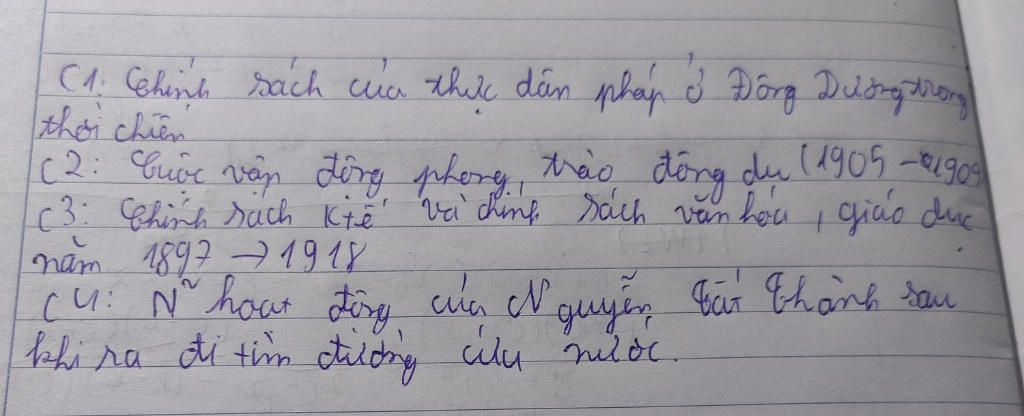 C1: Chính sách của thực dân pháp ở Đông Dương trong
thời chiến
C2: Cuộc vận động phong trào đông du (1905 - 1909)
C3: Chính sách ktế và chính sách văn hóa, giáo dục
năm 1897 → 1918
C4: N~ hoạt động của Nguyễn Tất Thành sau
khi ra đi tìm đường cứu nước.